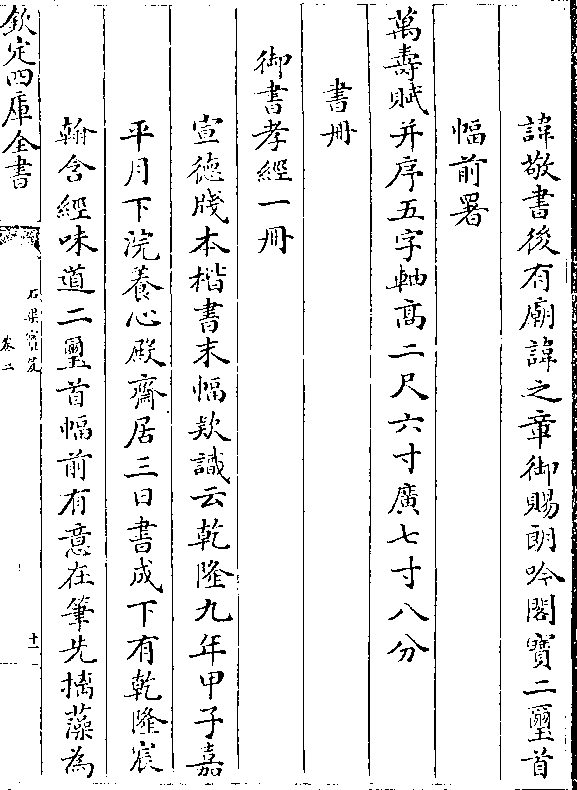 諱敬書後有廟諱之章御賜朗吟閣寶二璽首
幅前署
萬壽賦并序五字軸高二尺六寸廣七寸八分
書冊
御書孝經一冊
宣德牋本楷書末幅欵識云乾隆九年甲子嘉
平月下浣養心殿齋居三日書成下有乾隆宸
翰含經味道二璽首幅前有意在筆先摛藻為
欽定四庫全書
石渠寶笈
卷二
十一